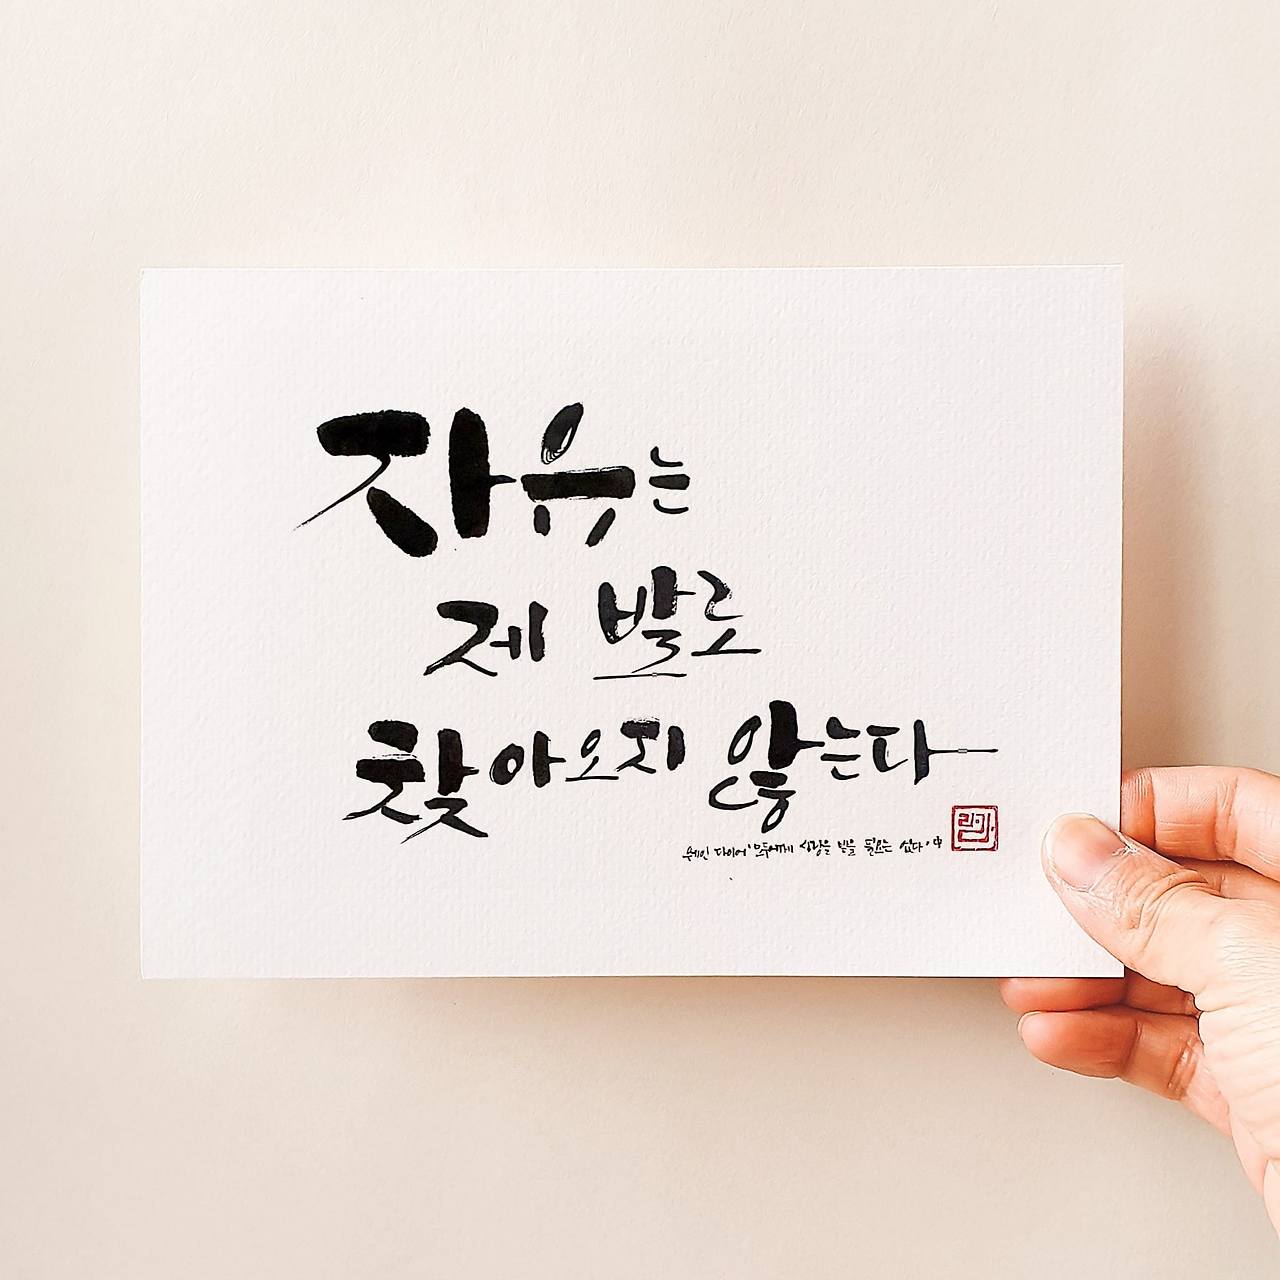 자유는
제 발로
찾아오지 않는다
웨인 다이어 '모두에게 사랑을 받을 필요는 없다' 中